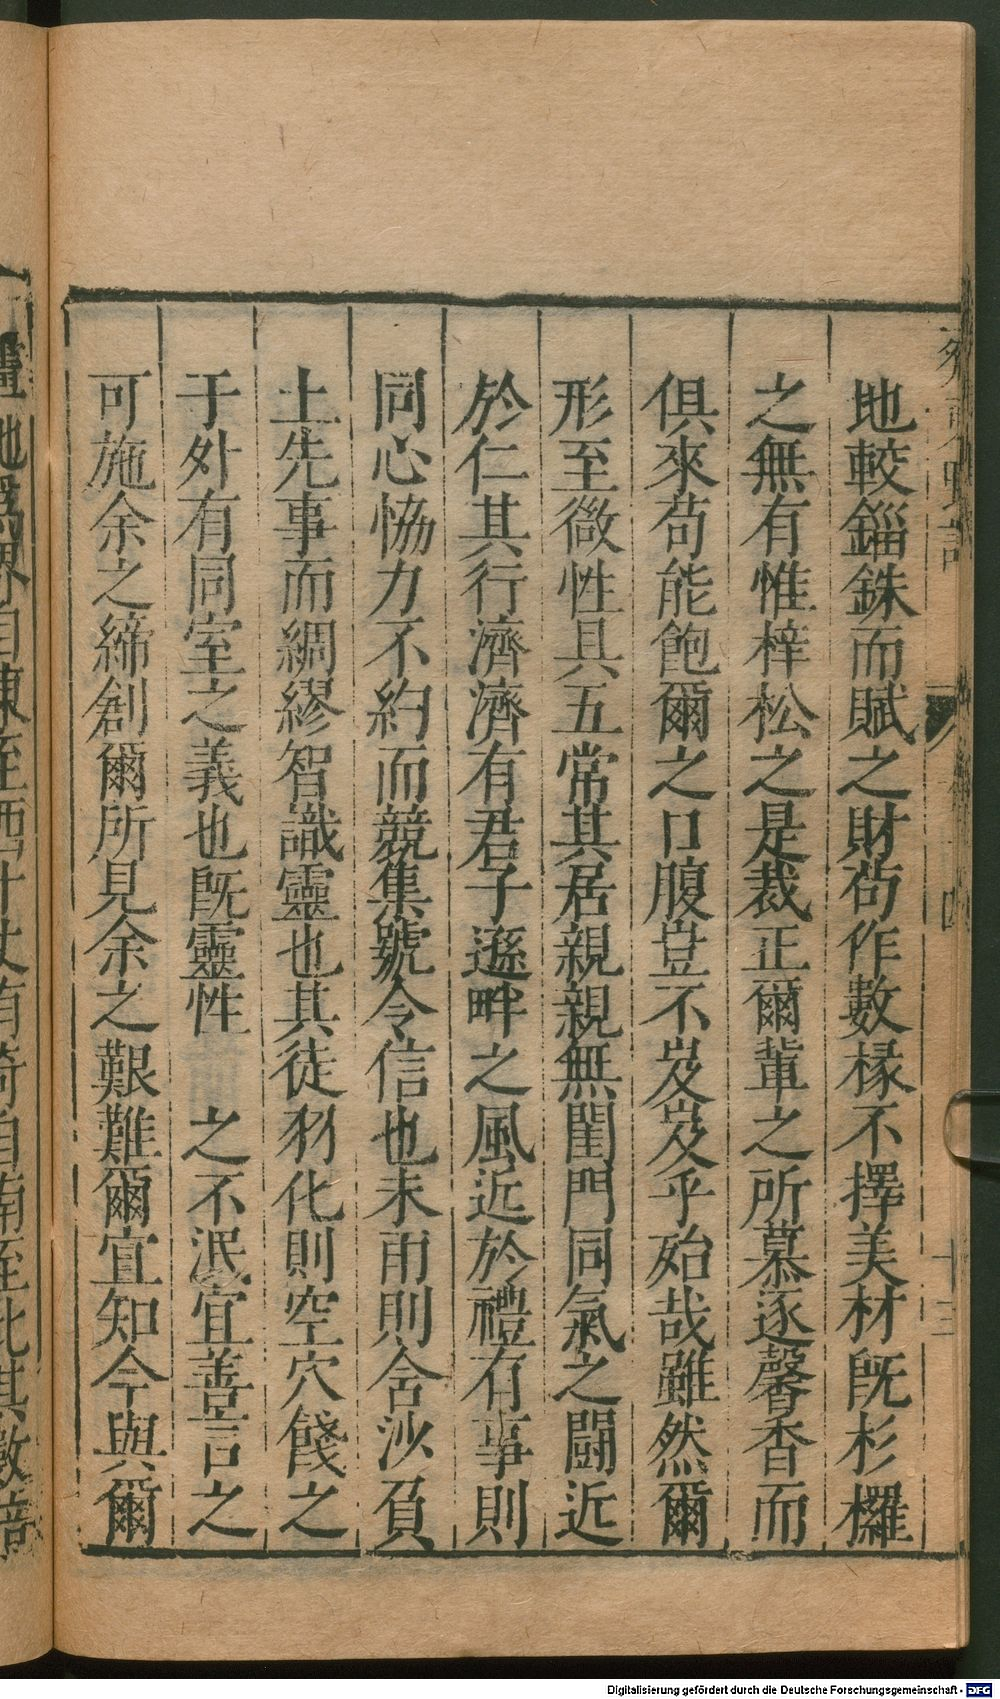 地較錙銖而賦之財茍作數椽不擇美材既杉欏
之無有惟梓松之是裁正爾輩之所慕逐馨香而
俱來茍能飽爾之口腹豈不岌岌乎殆哉雖然爾
形至微性具五常其居親親無閨門同氣之鬪近
於仁其行濟濟有君子遜畔之風近於禮有事則
同心恊力不約而競集號令信也未雨則含沙負
土先事而綢繆智識靈也其徒羽化則空穴餞之
于外有同室之義也既靈性 之不泯宜善言之
可施余之締創爾所見余之艱難爾宜知今與爾
十三
Digitalisierung gefördert durch die Deutsche Forschungsgemeinschaft - DFG